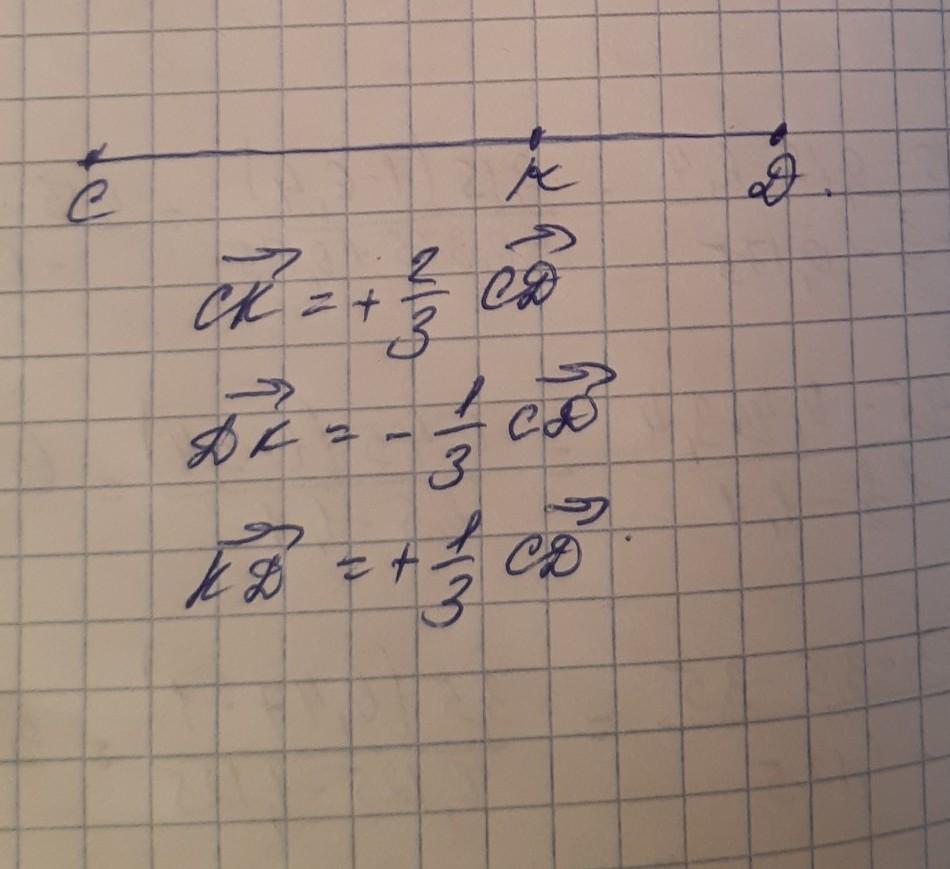 C K D.
CK→ = + 2/3 CD→
DK→ = - 1/3 CD→
KD→ = + 1/3 CD→.